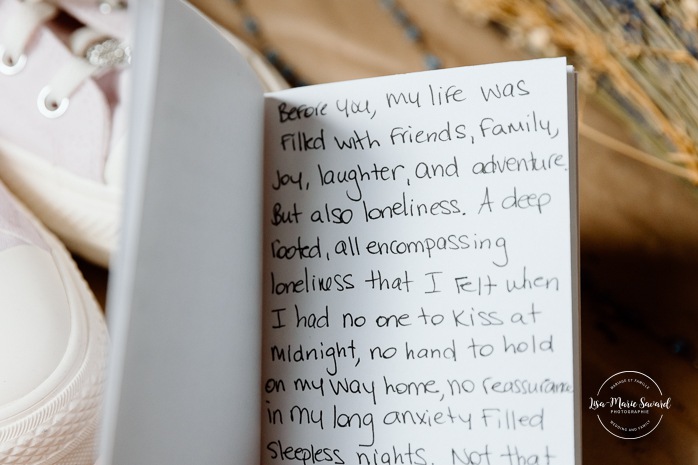 Before you, my life was
filled with friends, family,
joy, laughter, and adventure.
But also loneliness. A deep
rooted, all encompassing
loneliness that I felt when
I had no one to kiss at
midnight, no hand to hold
on my way home, no reassurance
in my long anxiety filled
sleepless nights. Not that
MARIAGE ET FAMILLE
Lisa-Marie Savard
PHOTOGRAPHIE
WEDDING AND FAMILY